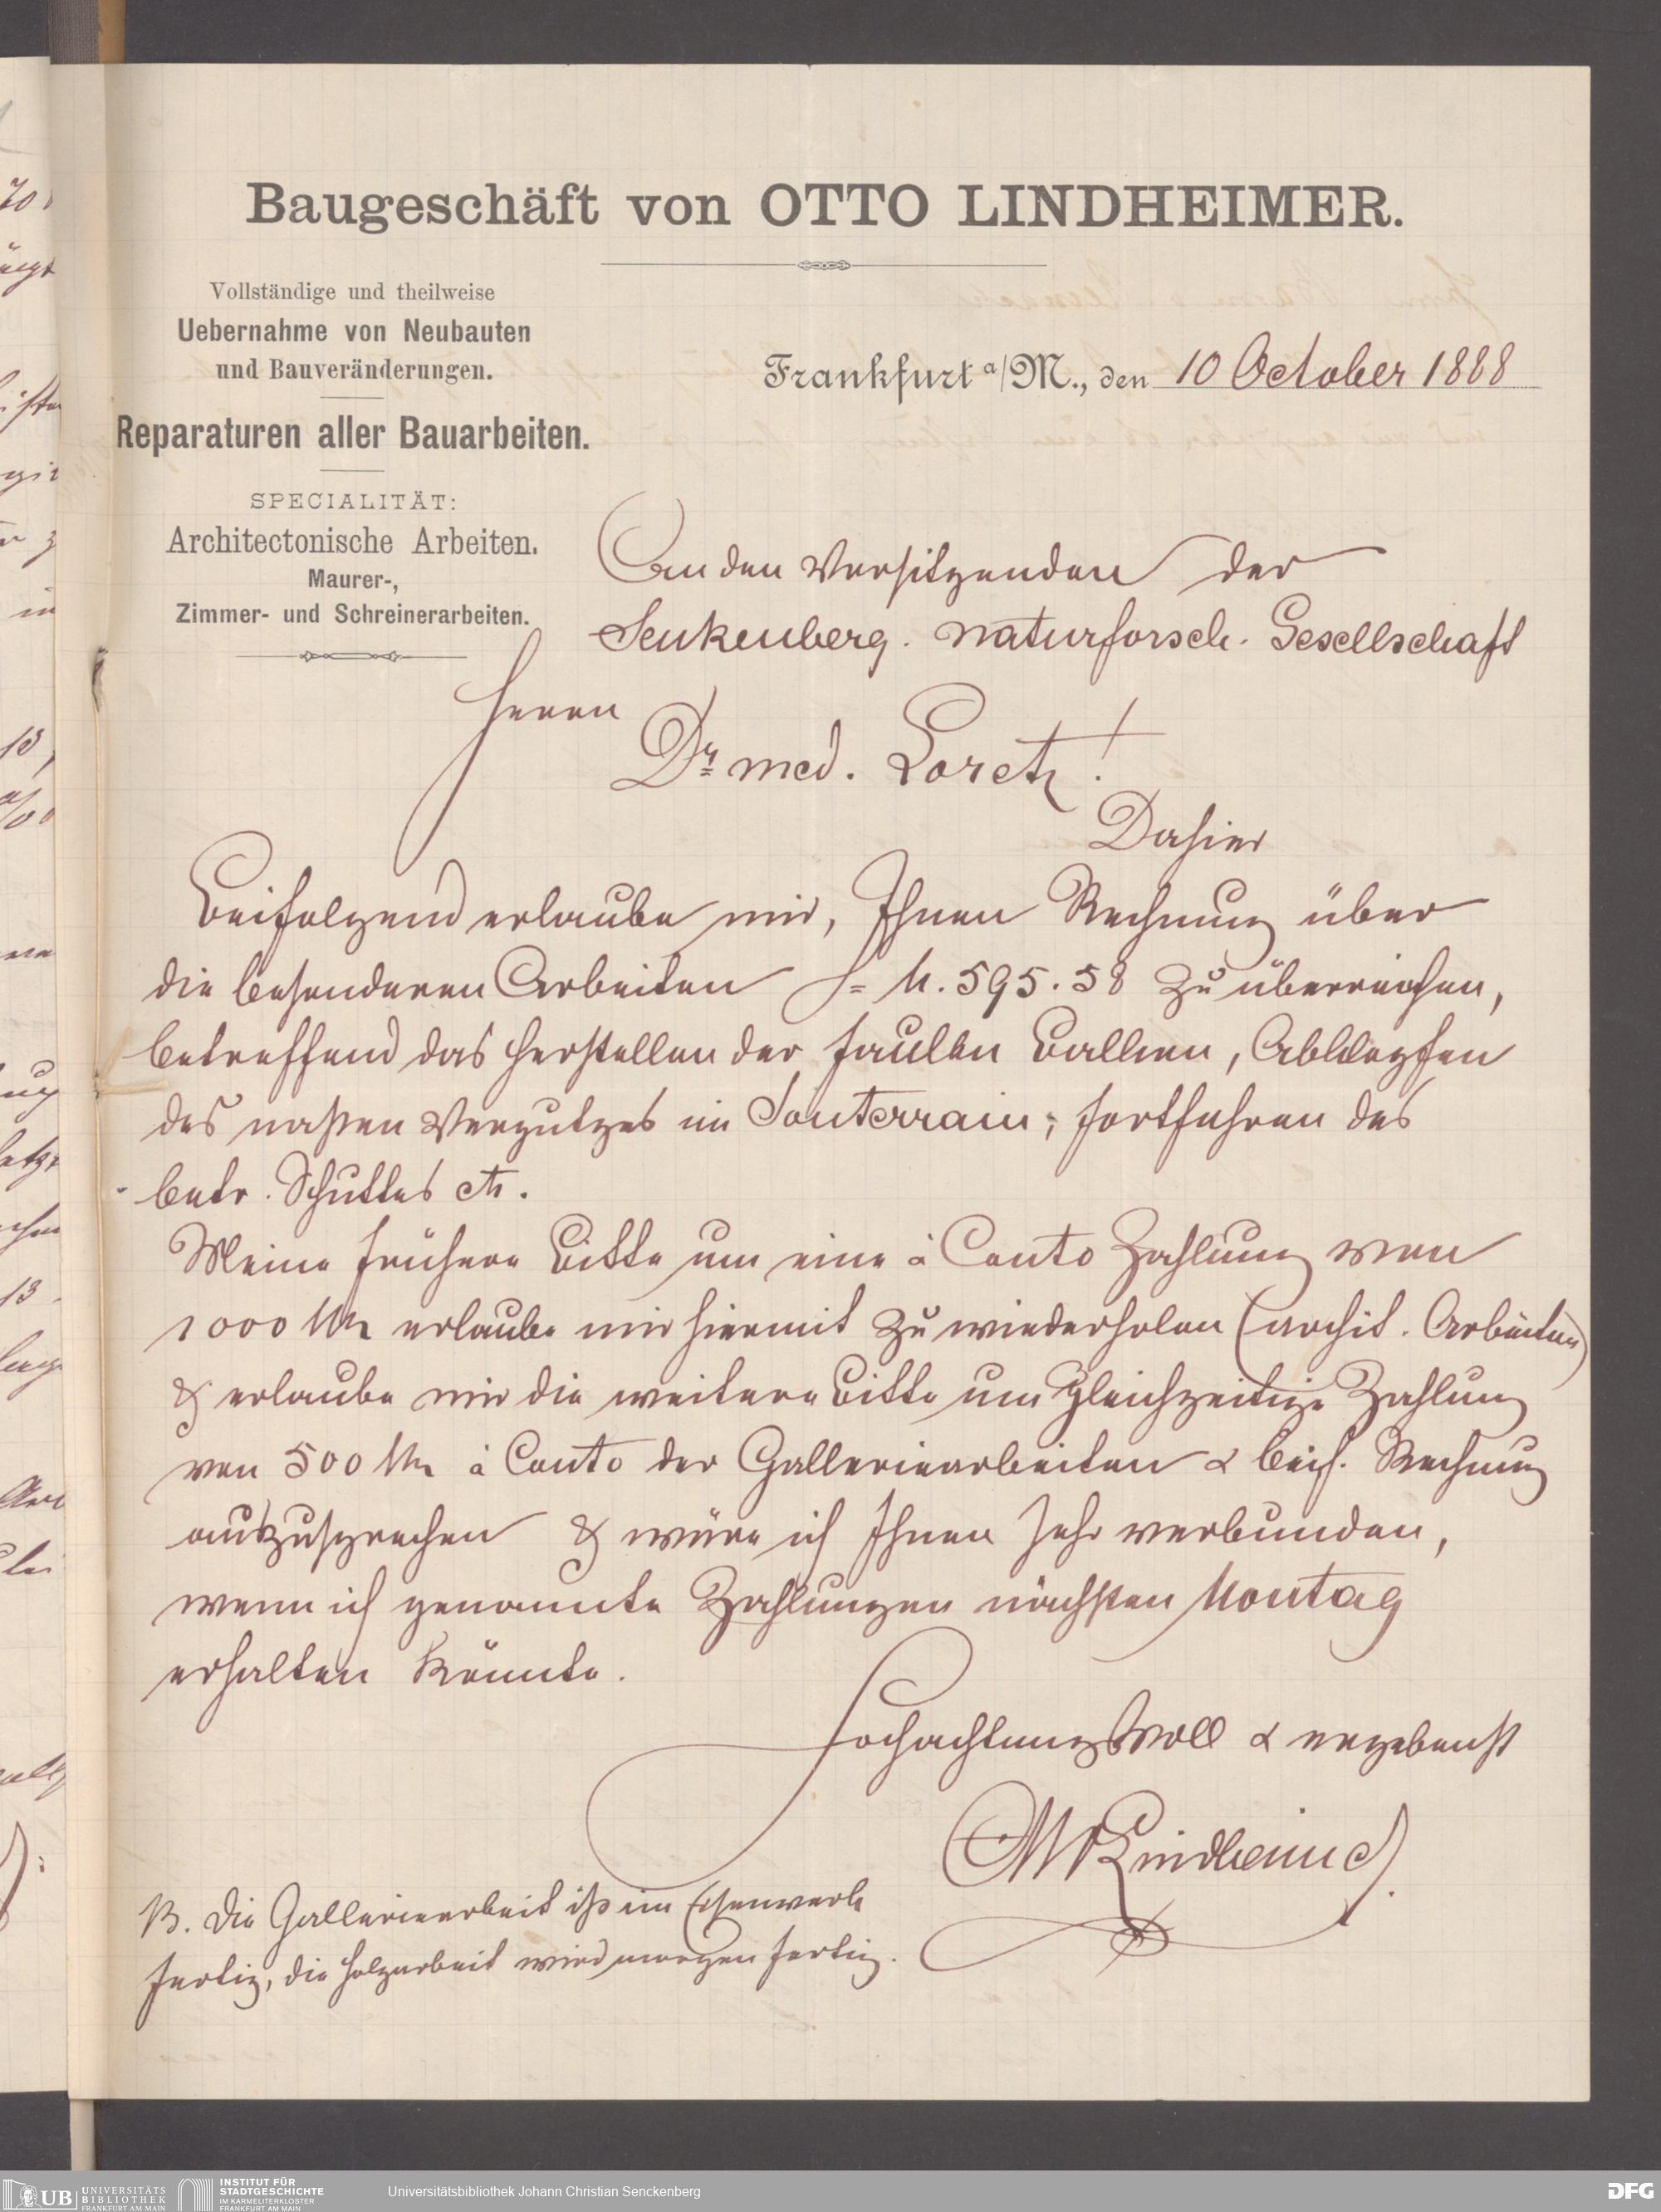 Baugeschäft von OTTO LINDHEIMER.
Vollständige und theilweise
Uebernahme von Neubauten
und Bauveränderungen.
Reparaturen aller Bauarbeiten.
SPECIALITÄT:
Architectonische Arbeiten.
Maurer-,
Zimmer- und Schreinerarbeiten.
Frankfurt a/M., den 10 October 1888
An den Vorsitzenden der
Senkenberg. naturforsch. Gesellschaft
Herrn
Dr. med. Loretz!
Dahier
Beifolgend erlaube mir, Ihnen Rechnung über
die besonderen Arbeiten = M. 595.58 zu überreichen,
betreffend das Herstellen der faulen Balken, Abklopfen
des nassen Verputzes im Souterrain, Fortfahren des
betr. Schuttes etc.
Meine frühere Bitte um eine à Conto Zahlung von
1000 Mk erlaube mir hiermit zu wiederholen (archit. Arbeiten)
& erlaube mir die weitere Bitte um gleichzeitige Zahlung
von 500 Mk à Conto der Galleriearbeiten & beif. Rechnung
auszusprechen & wäre ich Ihnen sehr verbunden,
wenn ich genannte Zahlungen nächsten Montag
erhalten könnte.
Hochachtungsvoll & ergebenst
Lindheimer
NB. Die Galleriearbeit ist im Eisenwerk
fertig, die Holzarbeit wird morgen fertig.
UB UNIVERSITÄTS
BIBLIOTHEK
FRANKFURT AM MAIN
INSTITUT FÜR
STADTGESCHICHTE
IM KARMELITERKLOSTER
FRANKFURT AM MAIN
Universitätsbibliothek Johann Christian Senckenberg
DFG